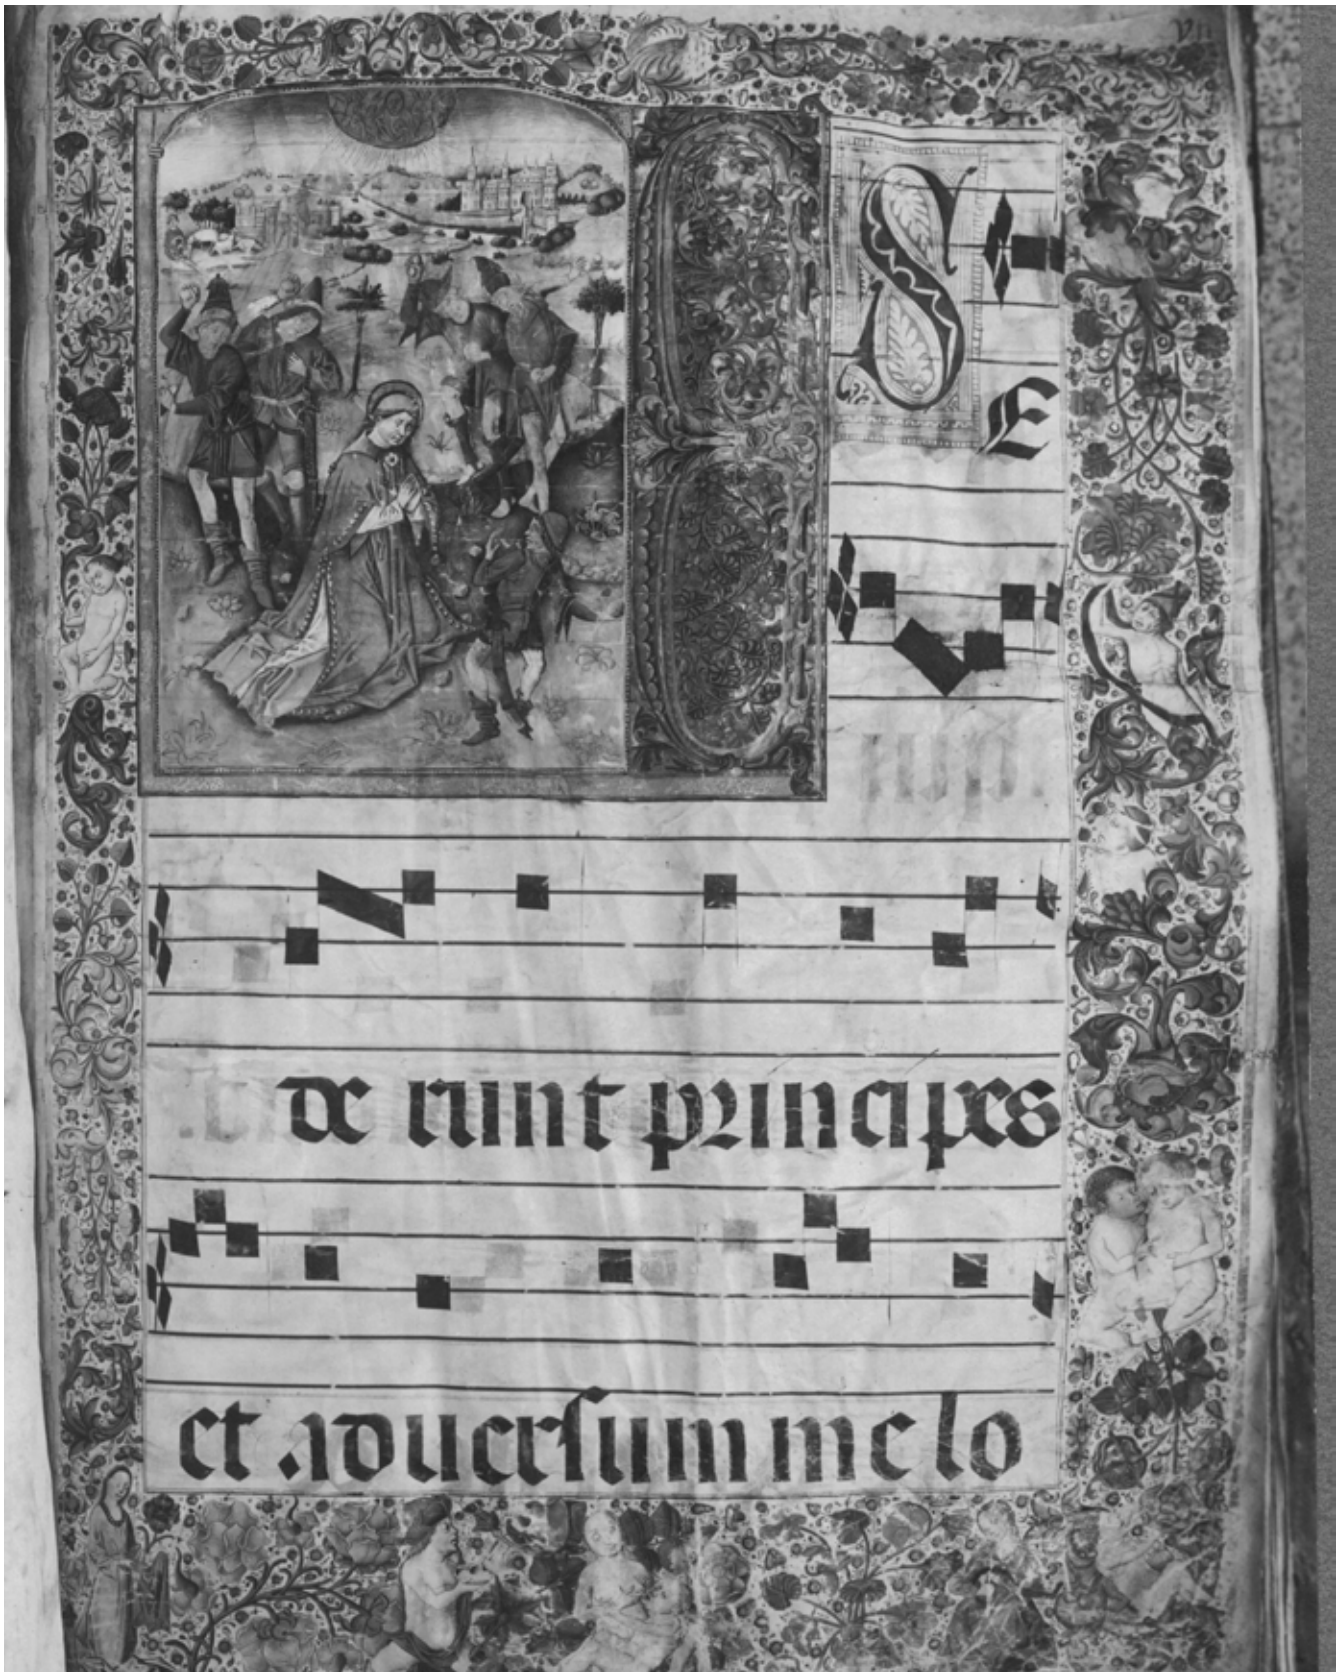 VII
SE
de runt principes
et aduersum me lo